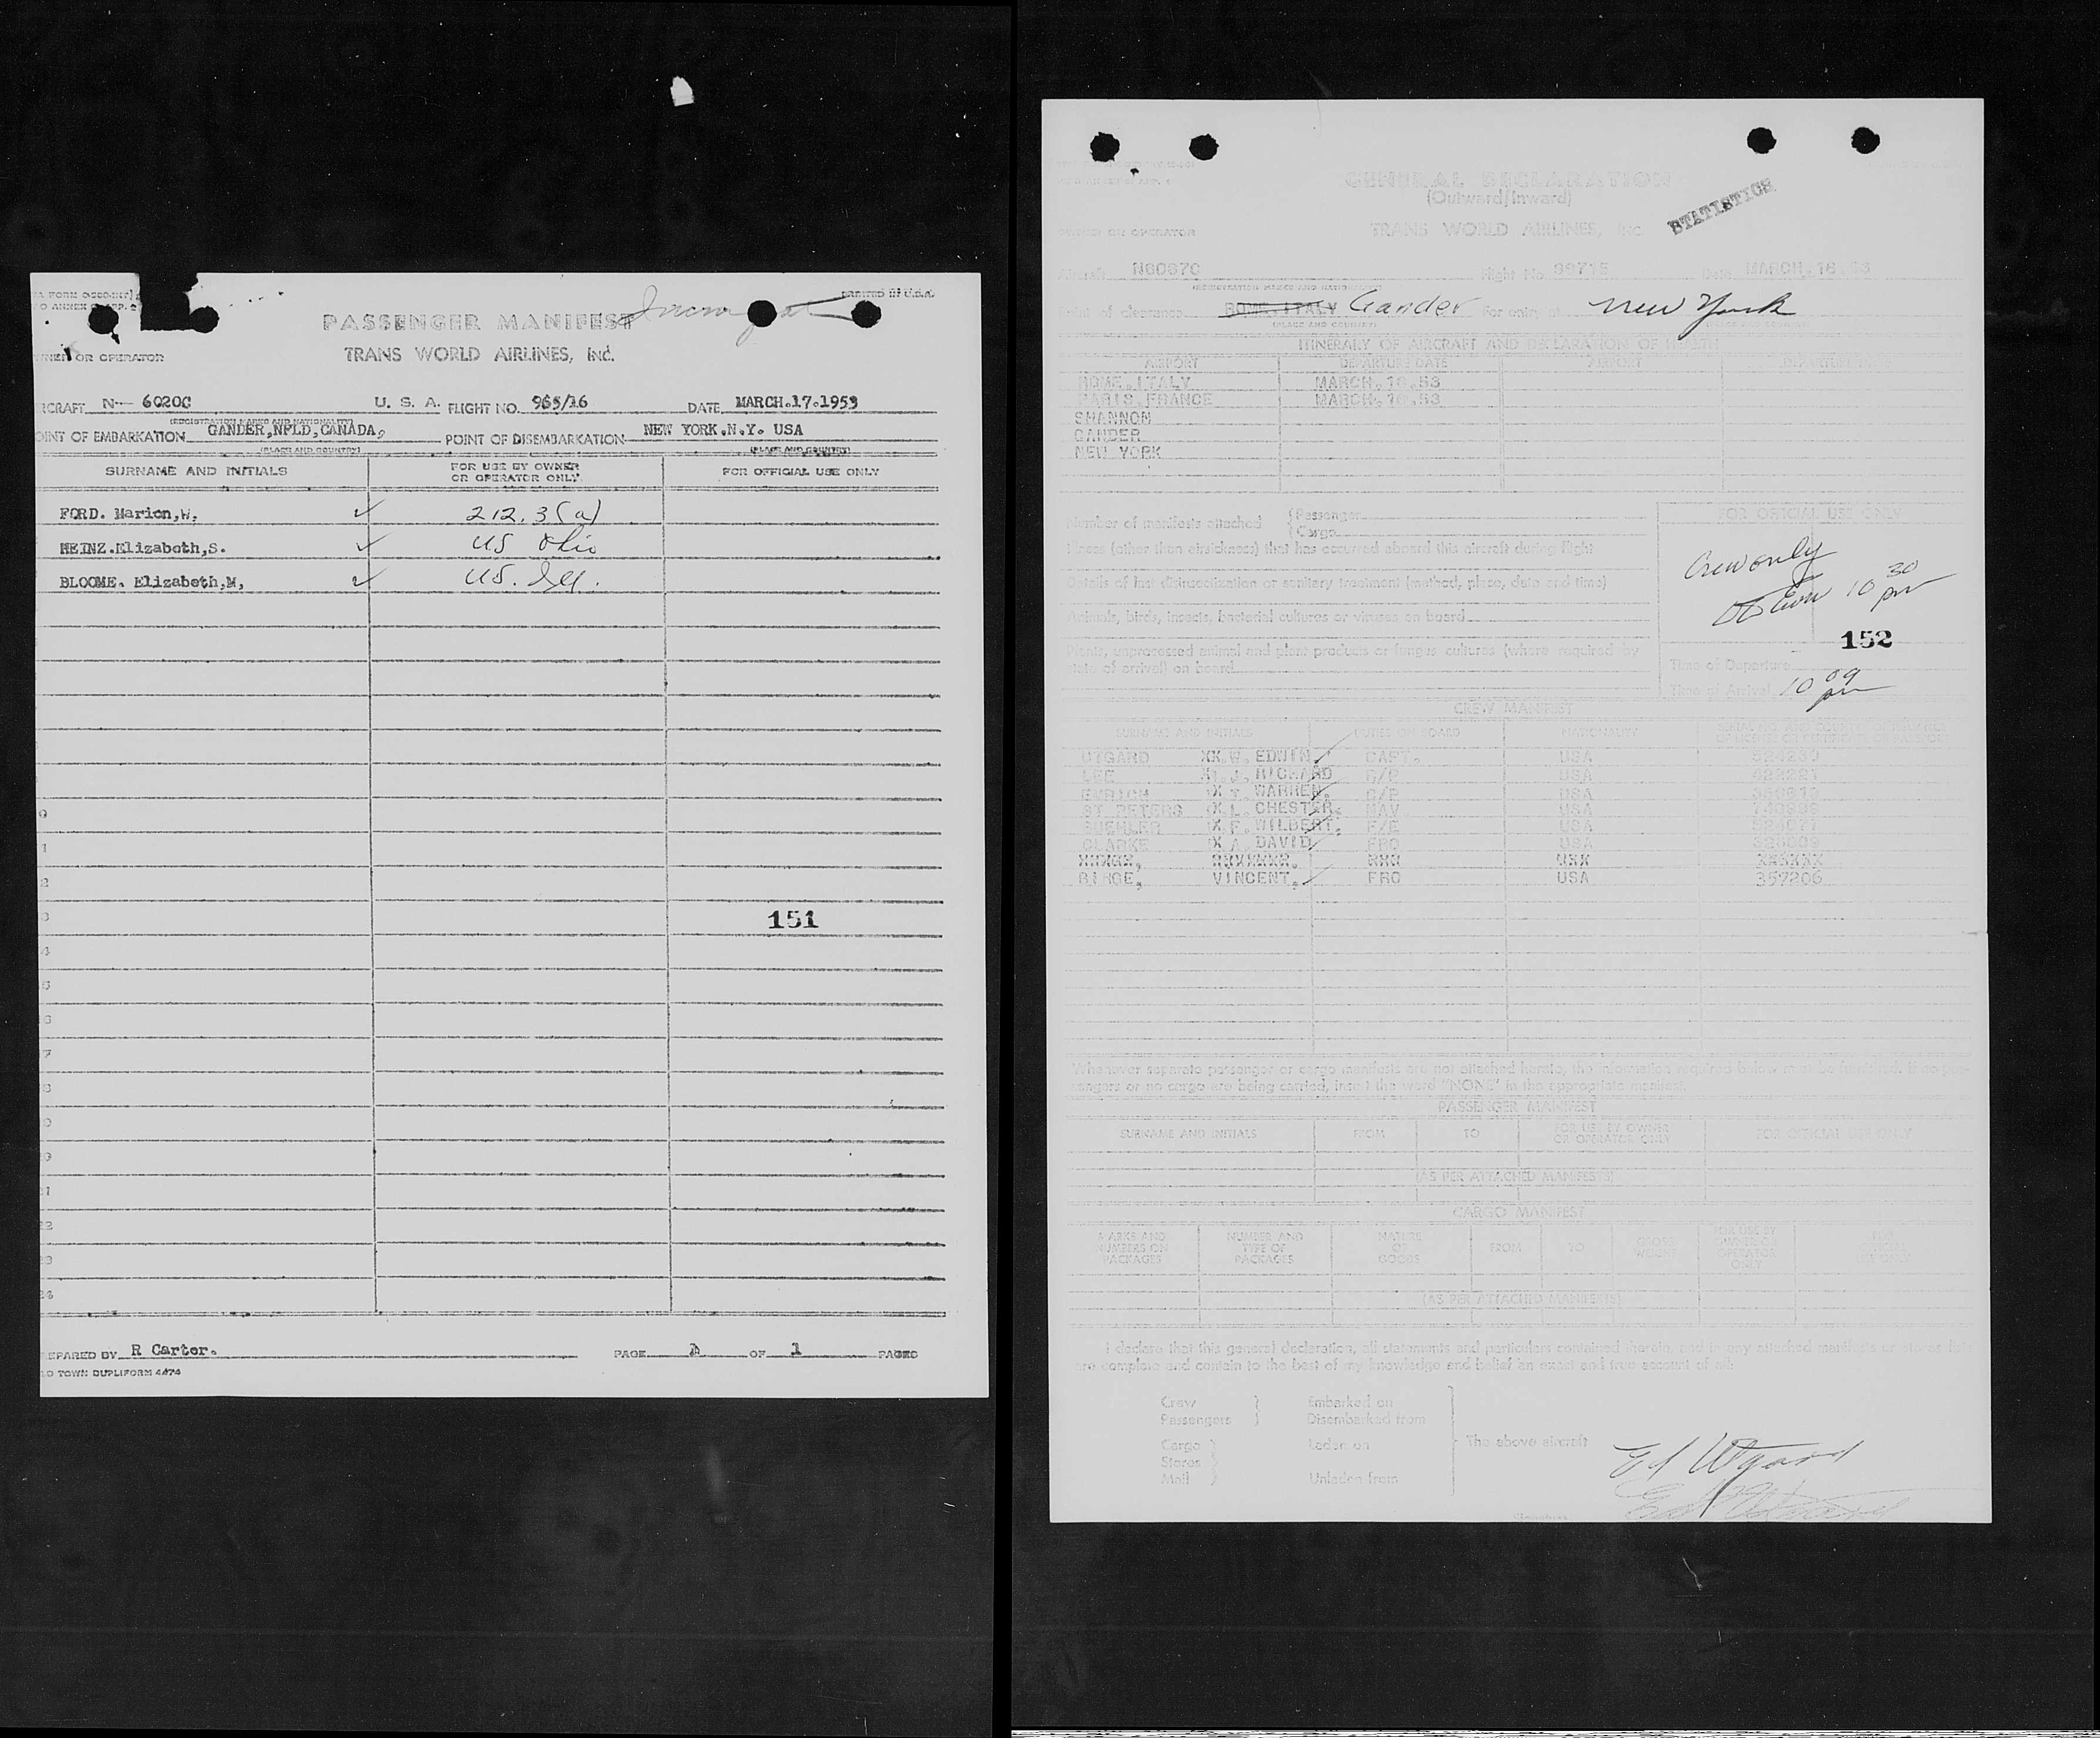 PRINTED IN U.S.A.
PASSENGER MANIFEST
TRANS WORLD AIRLINES, INC.
OR OPERATOR
N- 6020C U. S. A. FLIGHT NO. 965/16 DATE MARCH.17.1953
(REGISTRATION MARKS AND NATIONALITY)
OINT OF EMBARKATION GANDER,NFLD,CANADA, POINT OF DISEMBARKATION NEW YORK.N.Y. USA
(PLACE AND COUNTRY) (PLACE AND COUNTRY)
SURNAME AND INITIALS FOR USE BY OWNER OR OPERATOR ONLY FOR OFFICIAL USE ONLY
FORD. Marion,W. ✓ 212.3(a)
HEINZ.Elizabeth,S. ✓ US Ohio
BLOOME. Elizabeth,M, ✓ US.
151
EPARED BY R Carter. PAGE 1 OF 1 PAGES
TOWN DUPLIFORM 4474
GENERAL DECLARATION
(Outward/Inward)
STATISTICS
OWNER OR OPERATOR TRANS WORLD AIRLINES, INC.
Aircraft Flight No. Date MARCH.16.53
(REGISTRATION MARKS AND NATIONALITY)
Point of clearance ROME.ITALY Gander For entry at New York
(PLACE AND COUNTRY)
ITINERARY OF AIRCRAFT AND DECLARATION OF HEALTH
AIRPORT DEPARTURE DATE AIRPORT DEPARTURE
ROME.ITALY MARCH.16.53
PARIS.FRANCE MARCH.16.53
SHANNON
GANDER
NEW YORK
Number of manifests attached {Passenger
{Cargo
FOR OFFICIAL USE ONLY
Illness (other than airsickness) that has occurred aboard this aircraft during flight
Crew only
Details of last disinsectization or sanitary treatment (method, place, date and time)
10 30 pm
Animals, birds, insects, bacterial cultures or viruses on board
152
Plants, unprocessed animal and plant products or fungus cultures (where required by
state of arrival) on board
Time of Departure
Time of Arrival 10 09 pm
CREW MANIFEST
SURNAME AND INITIALS DUTIES ON BOARD NATIONALITY
UTGARD XX.W. EDWIN. CAPT. USA
LEE J. RICHARD USA
T. WARREN. USA
ST PETERS L. CHESTER. NAV. USA
F. WILBERT. F/E USA
CLARKE A. DAVID FRO USA
BIRGE, VINCENT. FRO USA 357206
Whenever separate passenger or cargo manifests are not attached hereto, the information required below must be furnished. If no pas-
sengers or no cargo are being carried, insert the word "NONE" in the appropriate manifest.
PASSENGER MANIFEST
SURNAME AND INITIALS FROM TO FOR USE BY OWNER OR OPERATOR ONLY FOR OFFICIAL USE ONLY
(AS PER ATTACHED MANIFESTS)
CARGO MANIFEST
MARKS AND NUMBERS ON PACKAGES NUMBER AND TYPE OF PACKAGES NATURE OF GOODS FROM TO GROSS WEIGHT FOR USE BY OWNER OR OPERATOR ONLY
(AS PER ATTACHED MANIFESTS)
I declare that this general declaration, all statements and particulars contained therein, and in any attached manifests or stores lists
are complete and contain to the best of my knowledge and belief an exact and true account of all:
Crew } Embarked on
Passengers } Disembarked from
Cargo } Laden on The above aircraft
Stores }
Mail } Unladen from
Ed Utgard